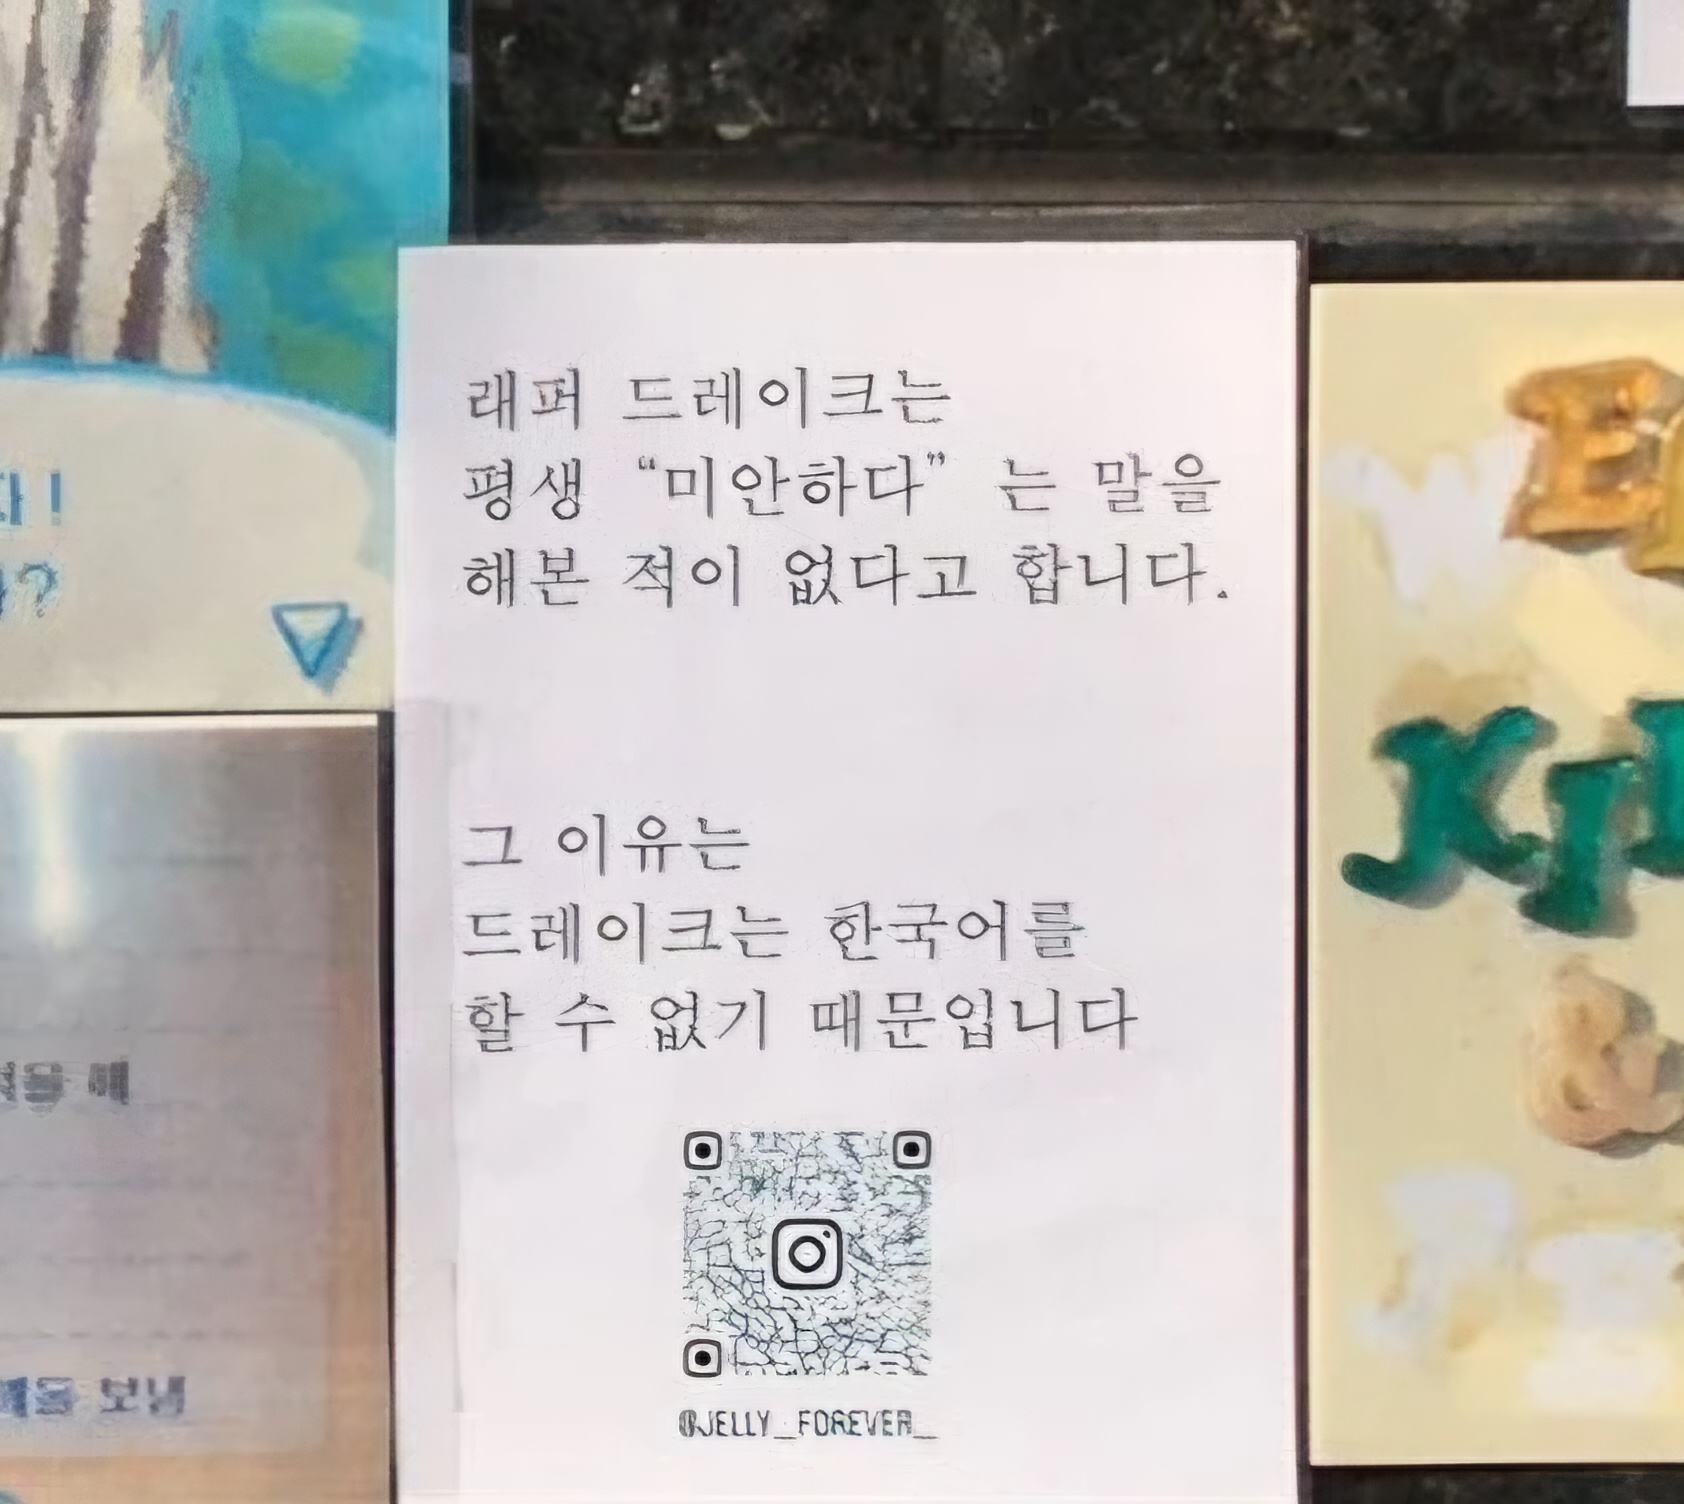 래퍼 드레이크는
평생 “미안하다” 는 말을
해본 적이 없다고 합니다.
그 이유는
드레이크는 한국어를
할 수 없기 때문입니다
@JELLY_FOREVER_
보냄